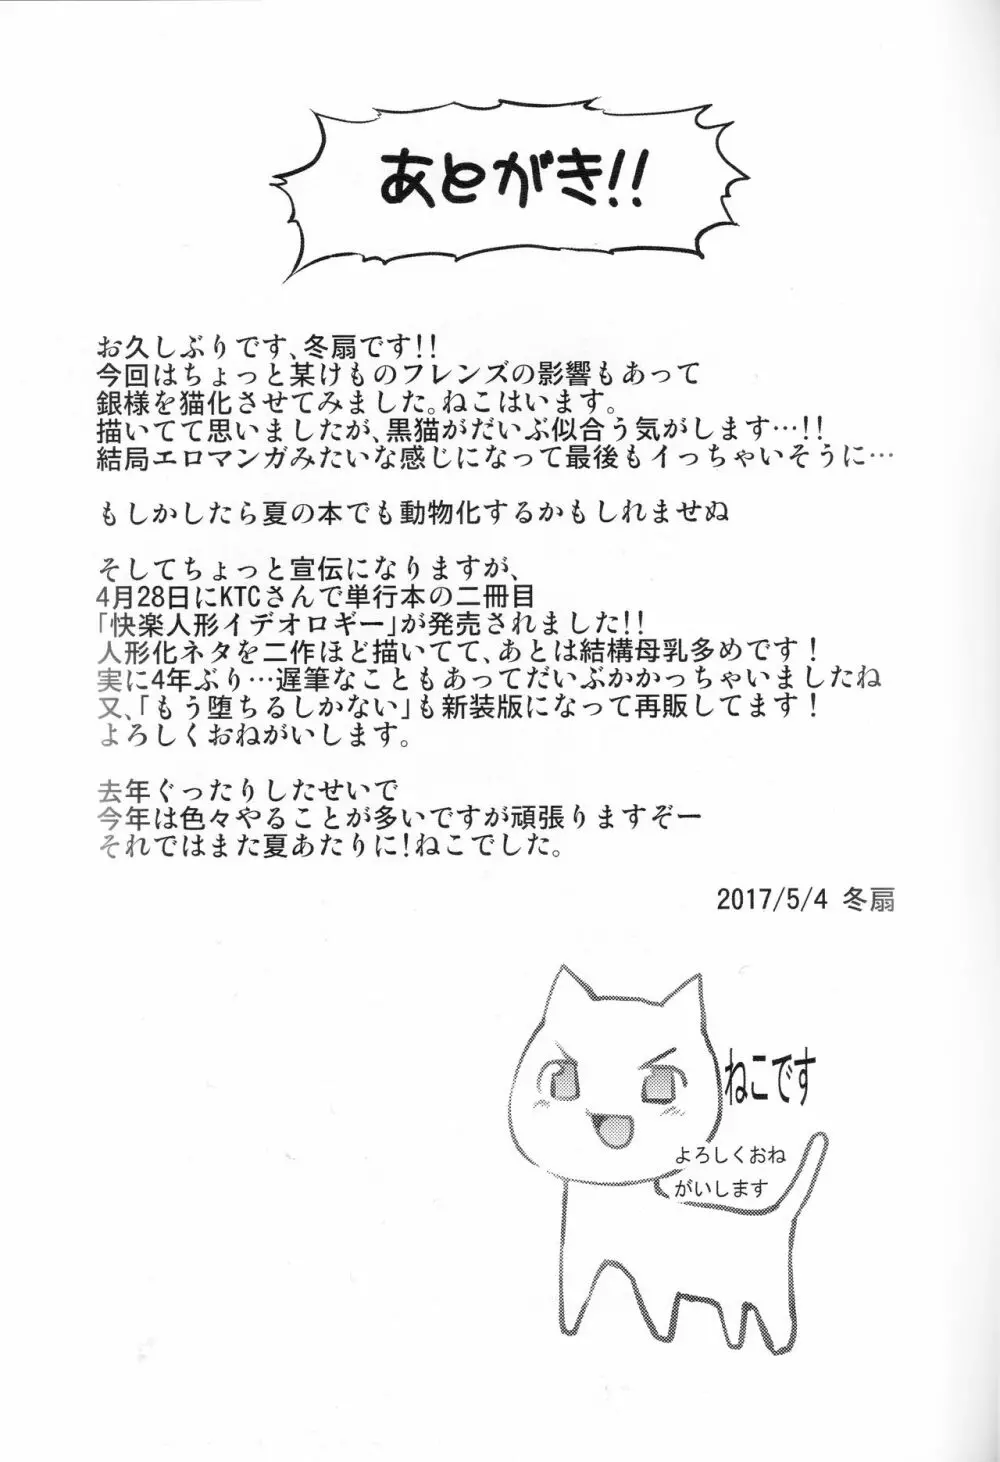 あとがき!!
お久しぶりです、冬扇です!!
今回はちょっと某けものフレンズの影響もあって
銀様を猫化させてみました。ねこはいます。
描いてて思いましたが、黒猫がだいぶ似合う気がします…!!
結局エロマンガみたいな感じになって最後もイっちゃいそうに…
もしかしたら夏の本でも動物化するかもしれませぬ
そしてちょっと宣伝になりますが、
4月28日にKTCさんで単行本の二冊目
「快楽人形イデオロギー」が発売されました!!
人形化ネタを二作ほど描いてて、あとは結構母乳多めです!
実に4年ぶり…遅筆なこともあってだいぶかかっちゃいましたね
又、「もう堕ちるしかない」も新装版になって再販してます!
よろしくおねがいします。
去年ぐったりしたせいで
今年は色々やることが多いですが頑張りますぞー
それではまた夏あたりに!ねこでした。
2017/5/4 冬扇
ねこです
よろしくおね
がいします